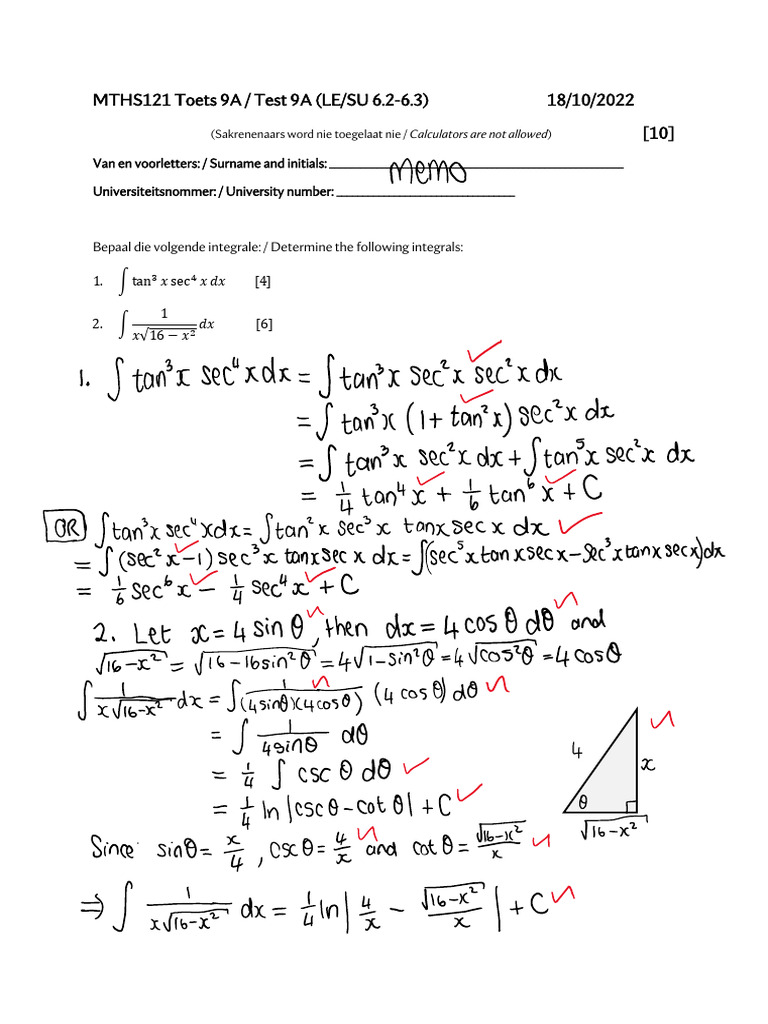 MTHS121 Toets 9A / Test 9A (LE/SU 6.2-6.3) 18/10/2022
(Sakrenenaars word nie toegelaat nie / Calculators are not allowed) [10]
Van en voorletters: / Surname and initials: memo
Universiteitsnommer: / University number:
Bepaal die volgende integrale: / Determine the following integrals:
1. ∫ tan³ x sec⁴ x dx [4]
2. ∫ 1/(x√(16 − x²)) dx [6]
1. ∫ tan³x sec⁴x dx = ∫ tan³x sec²x sec²x dx
= ∫ tan³x (1 + tan²x) sec²x dx
= ∫ tan³x sec²x dx + ∫ tan⁵x sec²x dx
= 1/4 tan⁴x + 1/6 tan⁶x + C
OR ∫ tan³x sec⁴x dx = ∫ tan²x sec³x tanx sec x dx
= ∫ (sec²x − 1) sec³x tanx sec x dx = ∫ (sec⁵x tan x sec x − sec³x tan x sec x) dx
= 1/6 sec⁶x − 1/4 sec⁴x + C
2. Let x = 4 sin θ, then dx = 4 cos θ dθ and
√(16−x²) = √(16−16sin²θ) = 4√(1−sin²θ) = 4√(cos²θ) = 4 cos θ
∫ 1/(x√(16−x²)) dx = ∫ 1/((4sinθ)(4cosθ)) (4 cosθ) dθ
= ∫ 1/(4sinθ) dθ
= 1/4 ∫ csc θ dθ
= 1/4 ln |csc θ − cot θ| + C
4
x
θ
√(16−x²)
Since sinθ = x/4, csc θ = 4/x and cot θ = √(16−x²)/x
⇒ ∫ 1/(x√(16−x²)) dx = 1/4 ln |4/x − √(16−x²)/x| + C